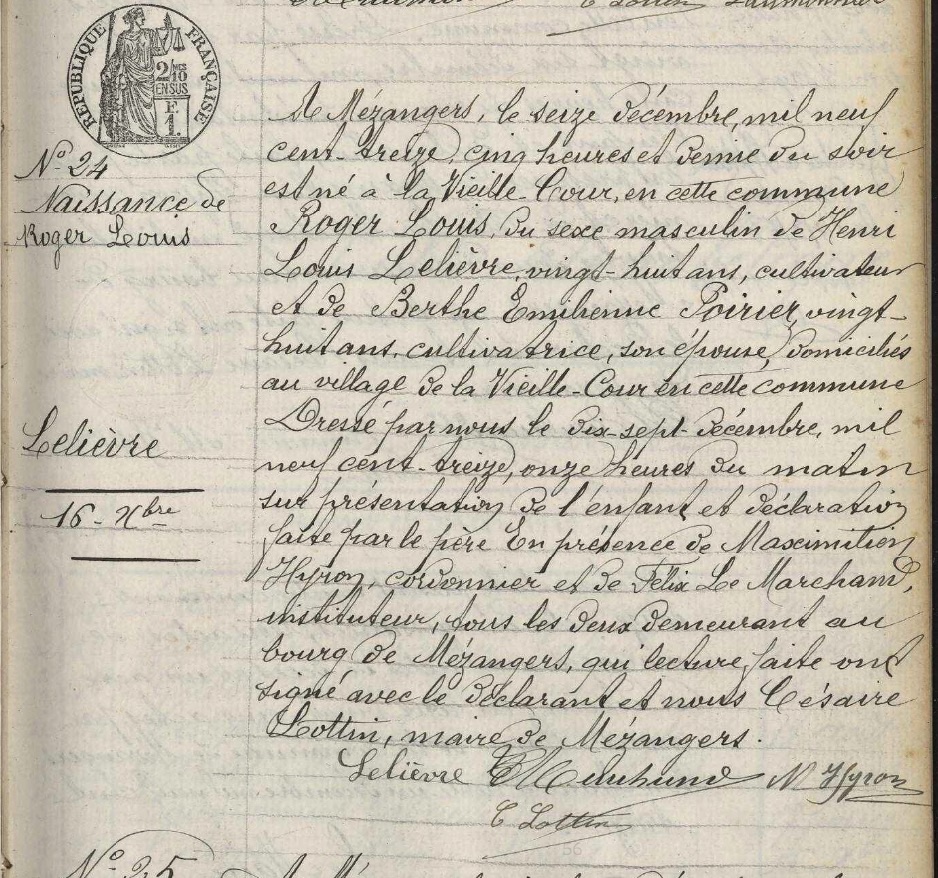 RÉPUBLIQUE FRANÇAISE
2/10 EN SUS
F.
1.
N° 24
Naissance de
Roger Louis
Lelièvre
16 - Xbre
A Mézangers, le seize décembre, mil neuf
cent-treize, cinq heures et demie du soir
est né à la Vieille-Cour, en cette commune
Roger Louis, du sexe masculin de Henri
Louis Lelièvre, vingt-huit ans, cultivateur
et de Berthe Emilienne Poirier, vingt-
huit ans, cultivatrice, son épouse, domiciliés
au village de la Vieille-Cour en cette commune
Dressé par nous le dix-sept décembre, mil
neuf cent-treize, onze heures du matin
sur présentation de l'enfant et déclaration
faite par le père En présence de Maximilien
Hyron, cordonnier et de Félix Le Marchand,
instituteur, tous les deux demeurant au
bourg de Mézangers, qui lecture faite ont
signé avec le déclarant et nous Césaire
Lottin, maire de Mézangers.
Lelièvre M Hyron
C Lottin
N° 25